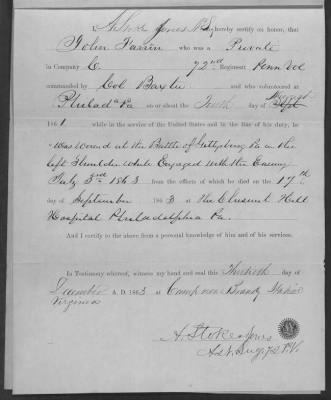 I, A. Stokes Jones M.D., hereby certify on honor, that
John Farrin who was a Private
in Company C. 72nd Regiment Penn Vol
commanded by Col Baxter and who volunteered at
Philad'a Pa on or about the Tenth day of August
1861 while in the service of the United States and in the line of his duty, he
was Wound at the Battle of Gettysburg Pa in the
left Shoulder While Engaged with the Enemy
July 3rd 1863 from the effects of which he died on the 17th
day of September 1863 at the Chesnut Hill
Hospital Philadelphia Pa.
And I certify to the above from a personal knowledge of him and of his services.
In Testimony whereof, witness my hand and seal this Thirtieth day of
December A. D. 1863 at Camp near Brandy Station
Virginia
A. Stokes Jones
Ast. Surg. 72 P.V.